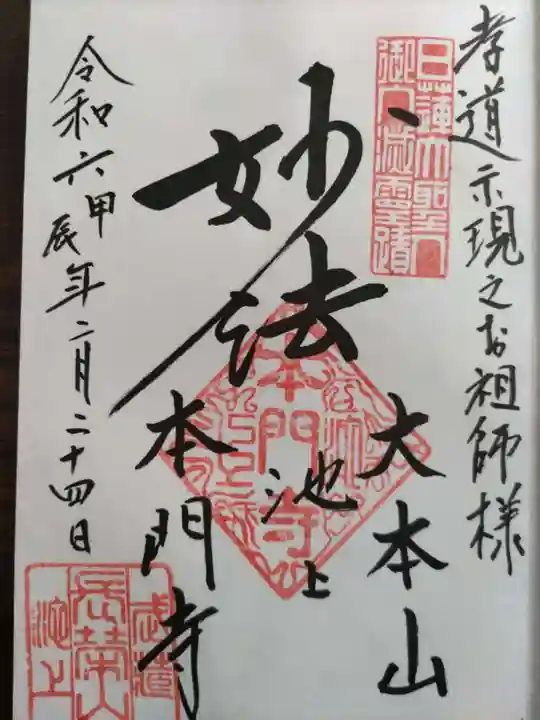 孝道示現之お祖師様
日蓮大聖人
御入滅霊蹟
妙法
大本山
池上
本門寺
令和六甲辰年二月二十四日
本門寺
武蔵
長栄山
池上